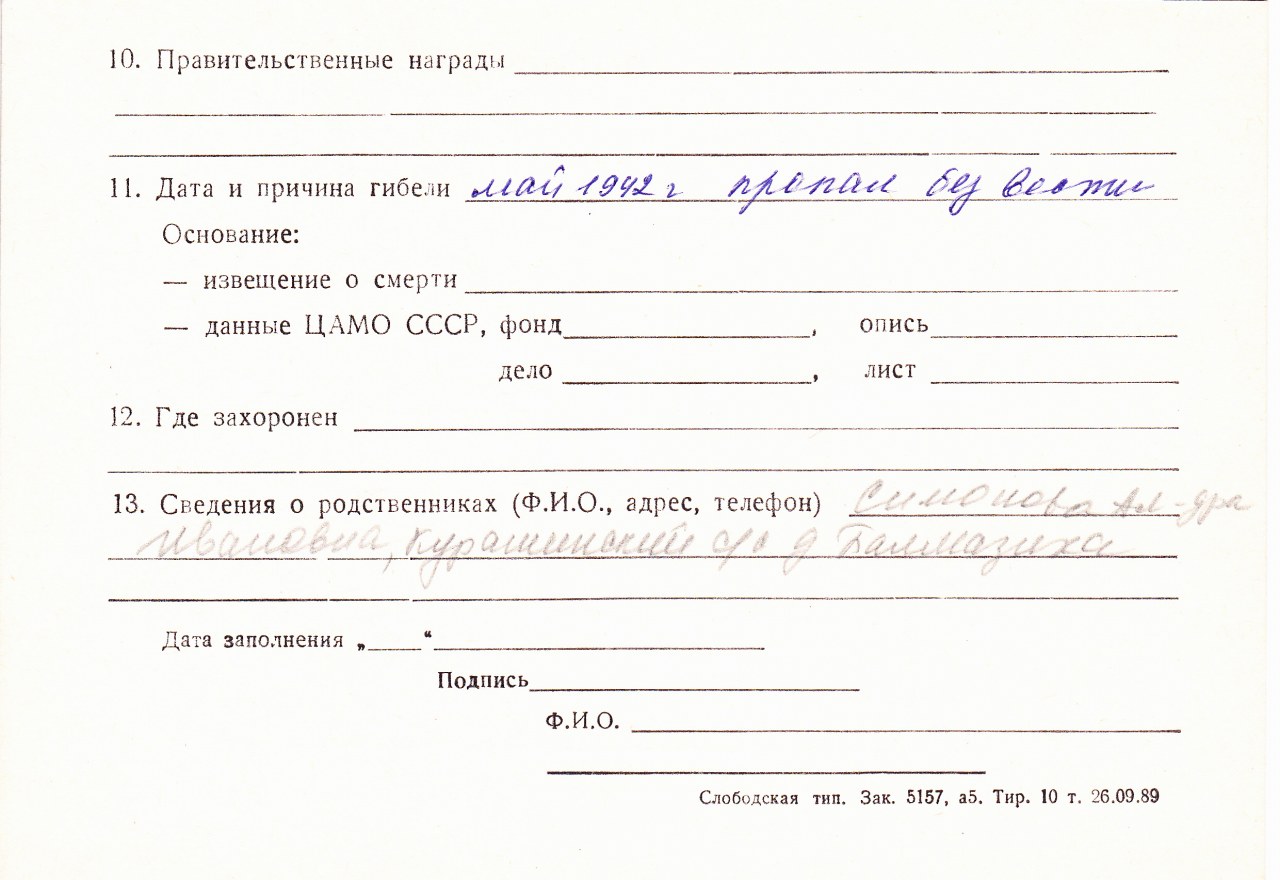 10. Правительственные награды
11. Дата и причина гибели май 1942 г пропал без вести
Основание:
— извещение о смерти
— данные ЦАМО СССР, фонд , опись
дело , лист
12. Где захоронен
13. Сведения о родственниках (Ф.И.О., адрес, телефон) Симонова Ал-дра
Ивановна, Курашинский с/с д Балмазиха
Дата заполнения „ “
Подпись
Ф.И.О.
Слободская тип. Зак. 5157, а5. Тир. 10 т. 26.09.89